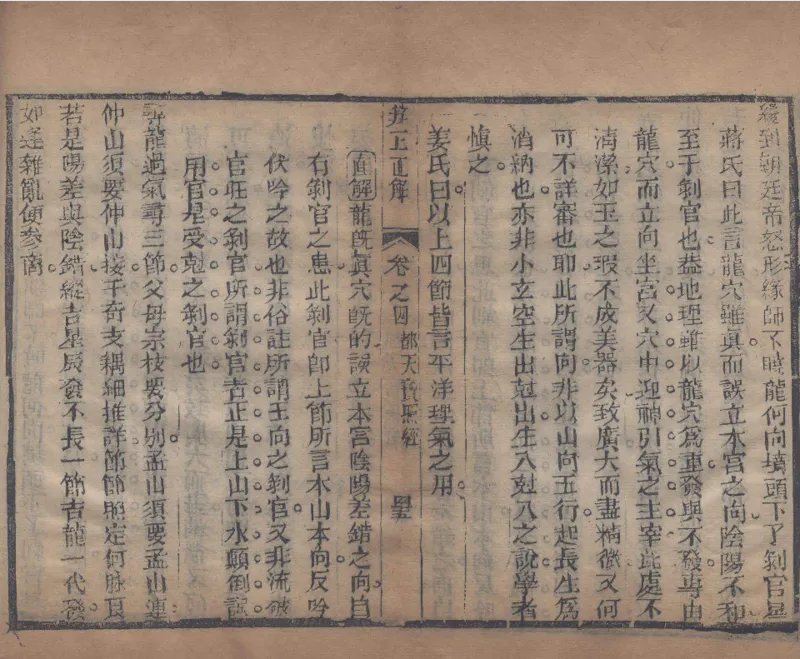 纔到朝廷帝怒形緣師不曉龍何向墳頭下了剝官星
蔣氏曰此言龍穴雖眞而誤立本宮之向陰陽不和
至于剝官也葢地理雖以龍穴爲重發與不發專由
龍穴而立向坐宮又穴中迎神引氣之主宰此處不
淸潔如玉之瑕不成美器矣致廣大而盡精微又何
可不詳審也耶此所謂向非以山向五行起長生爲
消納也亦非小玄空生出尅出生入尅入之說學者
愼之
姜氏曰以上四節皆言平洋理氣之用
辨正直解
卷之四
都天寶照經
四五
直解龍旣眞穴旣的誤立本宮陰陽差錯之向自
有剝官之患此剝官卽上節所言本山本向反吟
伏吟之故也非俗註所謂王向之剝官又非流破
官旺之剝官所謂剝官者正是上山下水顚倒誤
用官是受尅之剝官也
尋龍過氣尋三節父母宗枝要分別孟山須要孟山連
仲山須要仲山接干奇支耦細推詳節節照定何脉良
若是陽差與陰錯縱吉星辰發不長一節吉龍一代發
如逢雜亂便參商